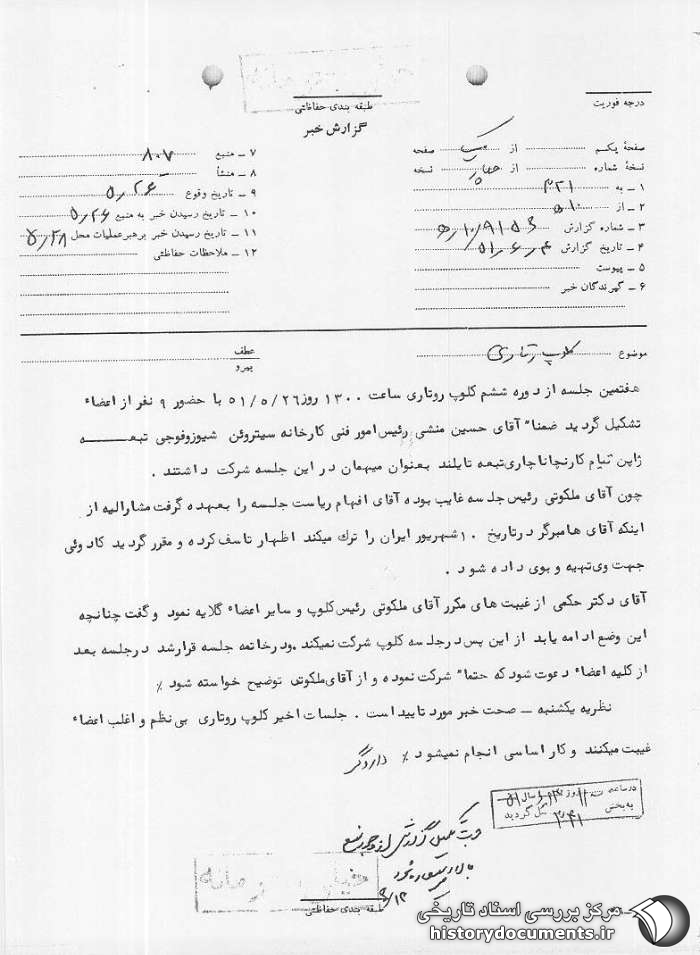 درجه فوریت
طبقه بندی حفاظتی
گزارش خبر
صفحهٔ یکم از یک صفحه
نسخهٔ شماره از چهار نسخه
۱ ـ به ۳۴۱
۲ ـ از ۵۱۰
۳ ـ شماره گزارش ۹۱۵۶/۱۰ه
۴ ـ تاریخ گزارش ۵۱٫۶٫۴
۵ ـ پیوست
۶ ـ گیرندگان خبر
۷ ـ منبع ۸۰۷
۸ ـ منشأ ـ
۹ ـ تاریخ وقوع ۵٫۲۶
۱۰ ـ تاریخ رسیدن خبر به منبع ۵٫۲۶
۱۱ ـ تاریخ رسیدن خبر برهبرعملیات محل ۵٫۲۸
۱۲ ـ ملاحظات حفاظتی
موضوع کلوپ رتاری
عطف
پیرو
هفتمین جلسه از دوره ششم کلوپ روتاری ساعت ۱۳۰۰ روز ۵۱/۵/۲۶ با حضور ۹ نفر از اعضاء
تشکیل گردید ضمنا" آقای حسین منشی رئیس امور فنی کارخانه سیتروئن شیوزوفوجی تبعه
ژاپن تیام کارنچاناچاری تبعه تایلند بعنوان میهمان در این جلسه شرکت داشتند .
چون آقای ملکوتی رئیس جلسه غایب بوده آقای افهام ریاست جلسه را بعهده گرفت مشارالیه از
اینکه آقای هامبرگر در تاریخ ۱۰ شهریور ایران را ترک میکند اظهار تاسف کرده و مقرر گردید کادوئی
جهت وی تهیه و بوی داده شود .
آقای دکتر حکمی از غیبت های مکرر آقای ملکوتی رئیس کلوپ و سایر اعضاء گلایه نمود و گفت چنانچه
این وضع ادامه یابد از این پس در جلسه کلوپ شرکت نمیکند . ودر خاتمه جلسه قرار شد در جلسه بعد
از کلیه اعضاء دعوت شود که حتما" شرکت نموده و از آقای ملکوتی توضیح خواسته شود ٪
نظریه یکشنبه ـ صحت خبر مورد تایید است . جلسات اخیر کلوپ روتاری بی نظم و اغلب اعضاء
غیبت میکنند و کار اساسی انجام نمیشود ٪ داروگر
در ساعت روز سال
به بخش ۳۴۱ گردید
طبقه بندی حفاظتی
مرکز بررسی اسناد تاریخی
historydocuments.ir